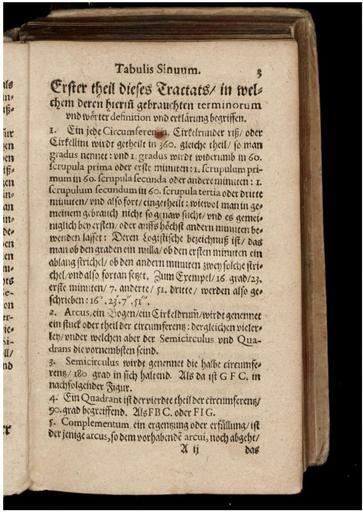 Tabulis Sinuum. 3
Erster theil dieses Tractats/ in wel-
chem deren hierin̄ gebrauchten terminorum
vnd wörter definition vnd erklärung begriffen.
1. Ein jede Circumferentz, Cirkelrunder riß/ oder
Cirkellini wirdt getheilt in 360. gleiche theil/ so man
gradus nennet: vnd 1. gradus wirdt widerumb in 60.
scrupula prima oder erste minuten: 1. scrupulum pri-
mum in 60. scrupula secunda oder andere minuten: 1.
scrupulum secundum in 60. scrupula tertia oder dritte
minuten/ vnd also fort/ eingetheilt: wiewol man in ge-
meinem gebrauch nicht so genaw sucht/ vnd es gemei-
niglich bey ersten/ oder auffs höchst andern minuten be-
wenden lasset: Deren Logistische bezeichnuß ist/ das
man ob den graden ein nulla/ ob den ersten minuten ein
ablang strichel/ ob den andern minuten zwey solche stri-
chel/ vnd also fortan setzt. Zum Exempel/ 16 grad/ 23.
erste minuten/ 7. anderte/ 51. dritte/ werden also ge-
schrieben: 16°. 23.' 7.'' 51.'''
2. Arcus, ein Bogen/ ein Cirkeldrum̄/ wirdt genennet
ein stuck oder theil der circumferentz: dergleichen vieler-
ley/ vnder welchen aber der Semicirculus vnd Qua-
drans die vornembsten seind.
3. Semicirculus wirdt genennet die halbe circumfe-
rentz/ 180 grad in sich haltend. Als da ist G F C. in
nachfolgender Figur.
4. Ein Quadrant ist der vierdte theil der circumferentz/
90. grad begreiffend. Als F B C. oder F I G.
5. Complementum ein ergentzung oder erfüllung/ ist
der jenige arcus, so dem vorhabendē arcui, noch abgeht/
A ij das